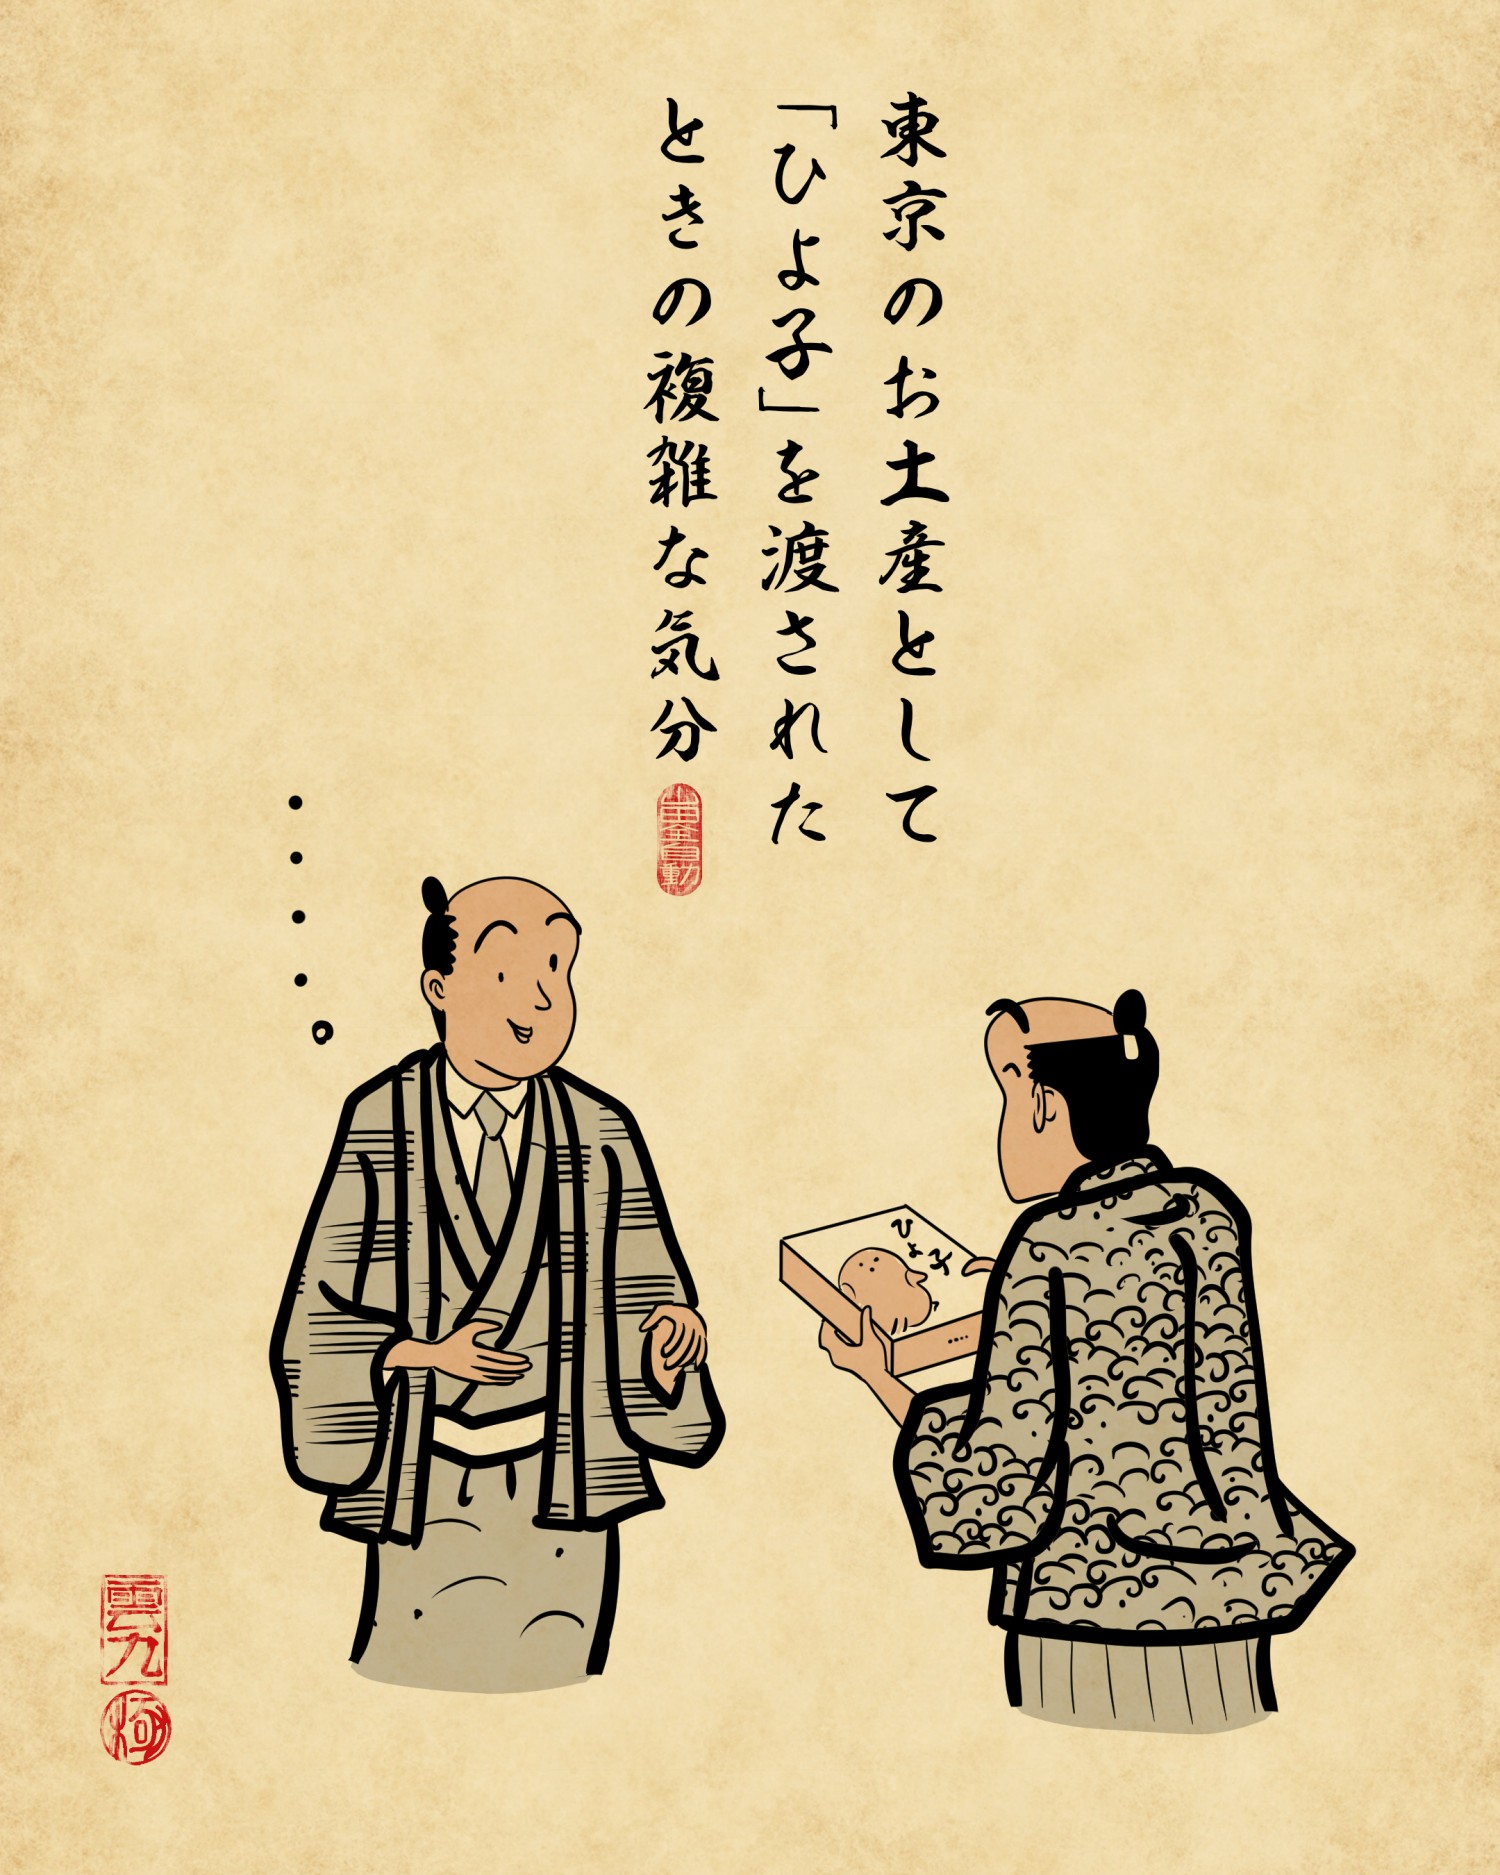 東京のお土産として
「ひよ子」を渡された
ときの複雑な気分
ひよ子
雲九
極